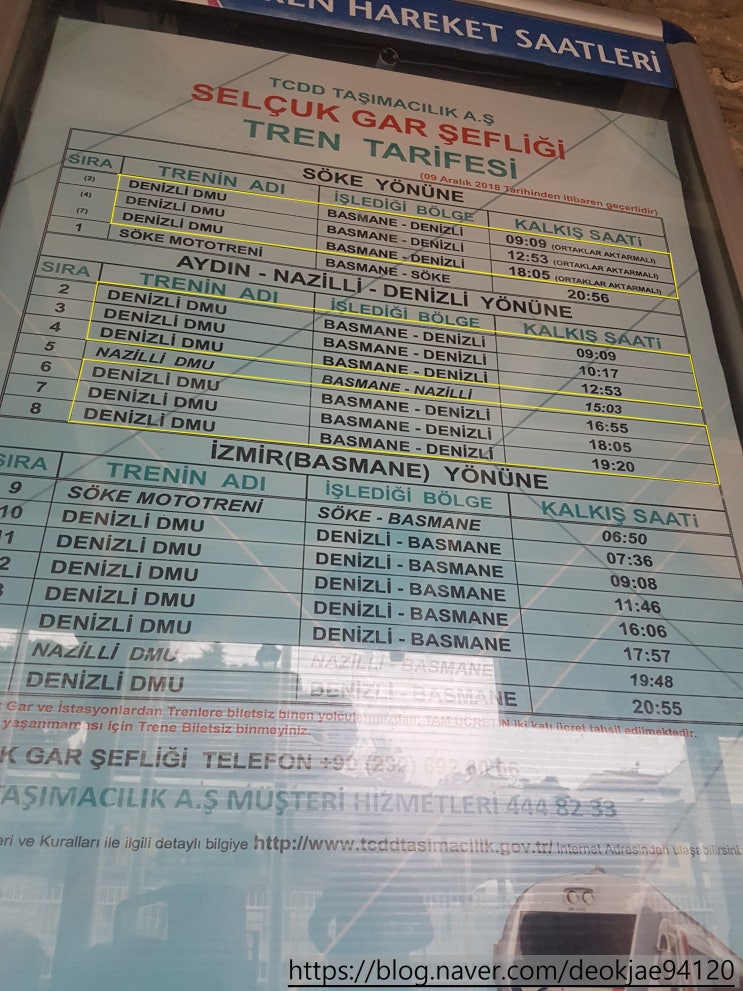 REN HAREKET SAATLERİ
TCDD TAŞIMACILIK A.Ş
SELÇUK GAR ŞEFLİĞİ
TREN TARİFESİ
(09 Aralık 2018 Tarihinden itibaren geçerlidir)
SÖKE YÖNÜNE
SIRA TRENİN ADI İŞLEDİĞİ BÖLGE KALKIŞ SAATİ
(2) DENİZLİ DMU BASMANE - DENİZLİ 09:09 (ORTAKLAR AKTARMALI)
(4) DENİZLİ DMU BASMANE - DENİZLİ 12:53 (ORTAKLAR AKTARMALI)
(7) DENİZLİ DMU BASMANE - DENİZLİ 18:05 (ORTAKLAR AKTARMALI)
1 SÖKE MOTOTRENİ BASMANE - SÖKE 20:56
AYDIN - NAZİLLİ - DENİZLİ YÖNÜNE
SIRA TRENİN ADI İŞLEDİĞİ BÖLGE KALKIŞ SAATİ
2 DENİZLİ DMU BASMANE - DENİZLİ 09:09
3 DENİZLİ DMU BASMANE - DENİZLİ 10:17
4 DENİZLİ DMU BASMANE - DENİZLİ 12:53
5 NAZİLLİ DMU BASMANE - NAZİLLİ 15:03
6 DENİZLİ DMU BASMANE - DENİZLİ 16:55
7 DENİZLİ DMU BASMANE - DENİZLİ 18:05
8 DENİZLİ DMU BASMANE - DENİZLİ 19:20
İZMİR(BASMANE) YÖNÜNE
SIRA TRENİN ADI İŞLEDİĞİ BÖLGE KALKIŞ SAATİ
9 SÖKE MOTOTRENİ SÖKE - BASMANE 06:50
10 DENİZLİ DMU DENİZLİ - BASMANE 07:36
11 DENİZLİ DMU DENİZLİ - BASMANE 09:08
2 DENİZLİ DMU DENİZLİ - BASMANE 11:46
DENİZLİ DMU DENİZLİ - BASMANE 16:06
DENİZLİ DMU DENİZLİ - BASMANE 17:57
NAZİLLİ DMU NAZİLLİ - BASMANE 19:48
DENİZLİ DMU DENİZLİ - BASMANE 20:55
Gar ve İstasyonlardan Trenlere biletsiz binen yolculardan TAM ÜCRETİN iki katı ücret tahsil edilmektedir.
yaşanmaması için Trene Biletsiz binmeyiniz.
K GAR ŞEFLİĞİ TELEFON +90 (232) 892
TAŞIMACILIK A.Ş MÜŞTERİ HİZMETLERİ 444 82 33
eri ve Kuralları ile ilgili detaylı bilgiye http://www.tcddtasimacilik.gov.tr/ İnternet Adresinden ulaşabilirsini
https://blog.naver.com/deokjae94120